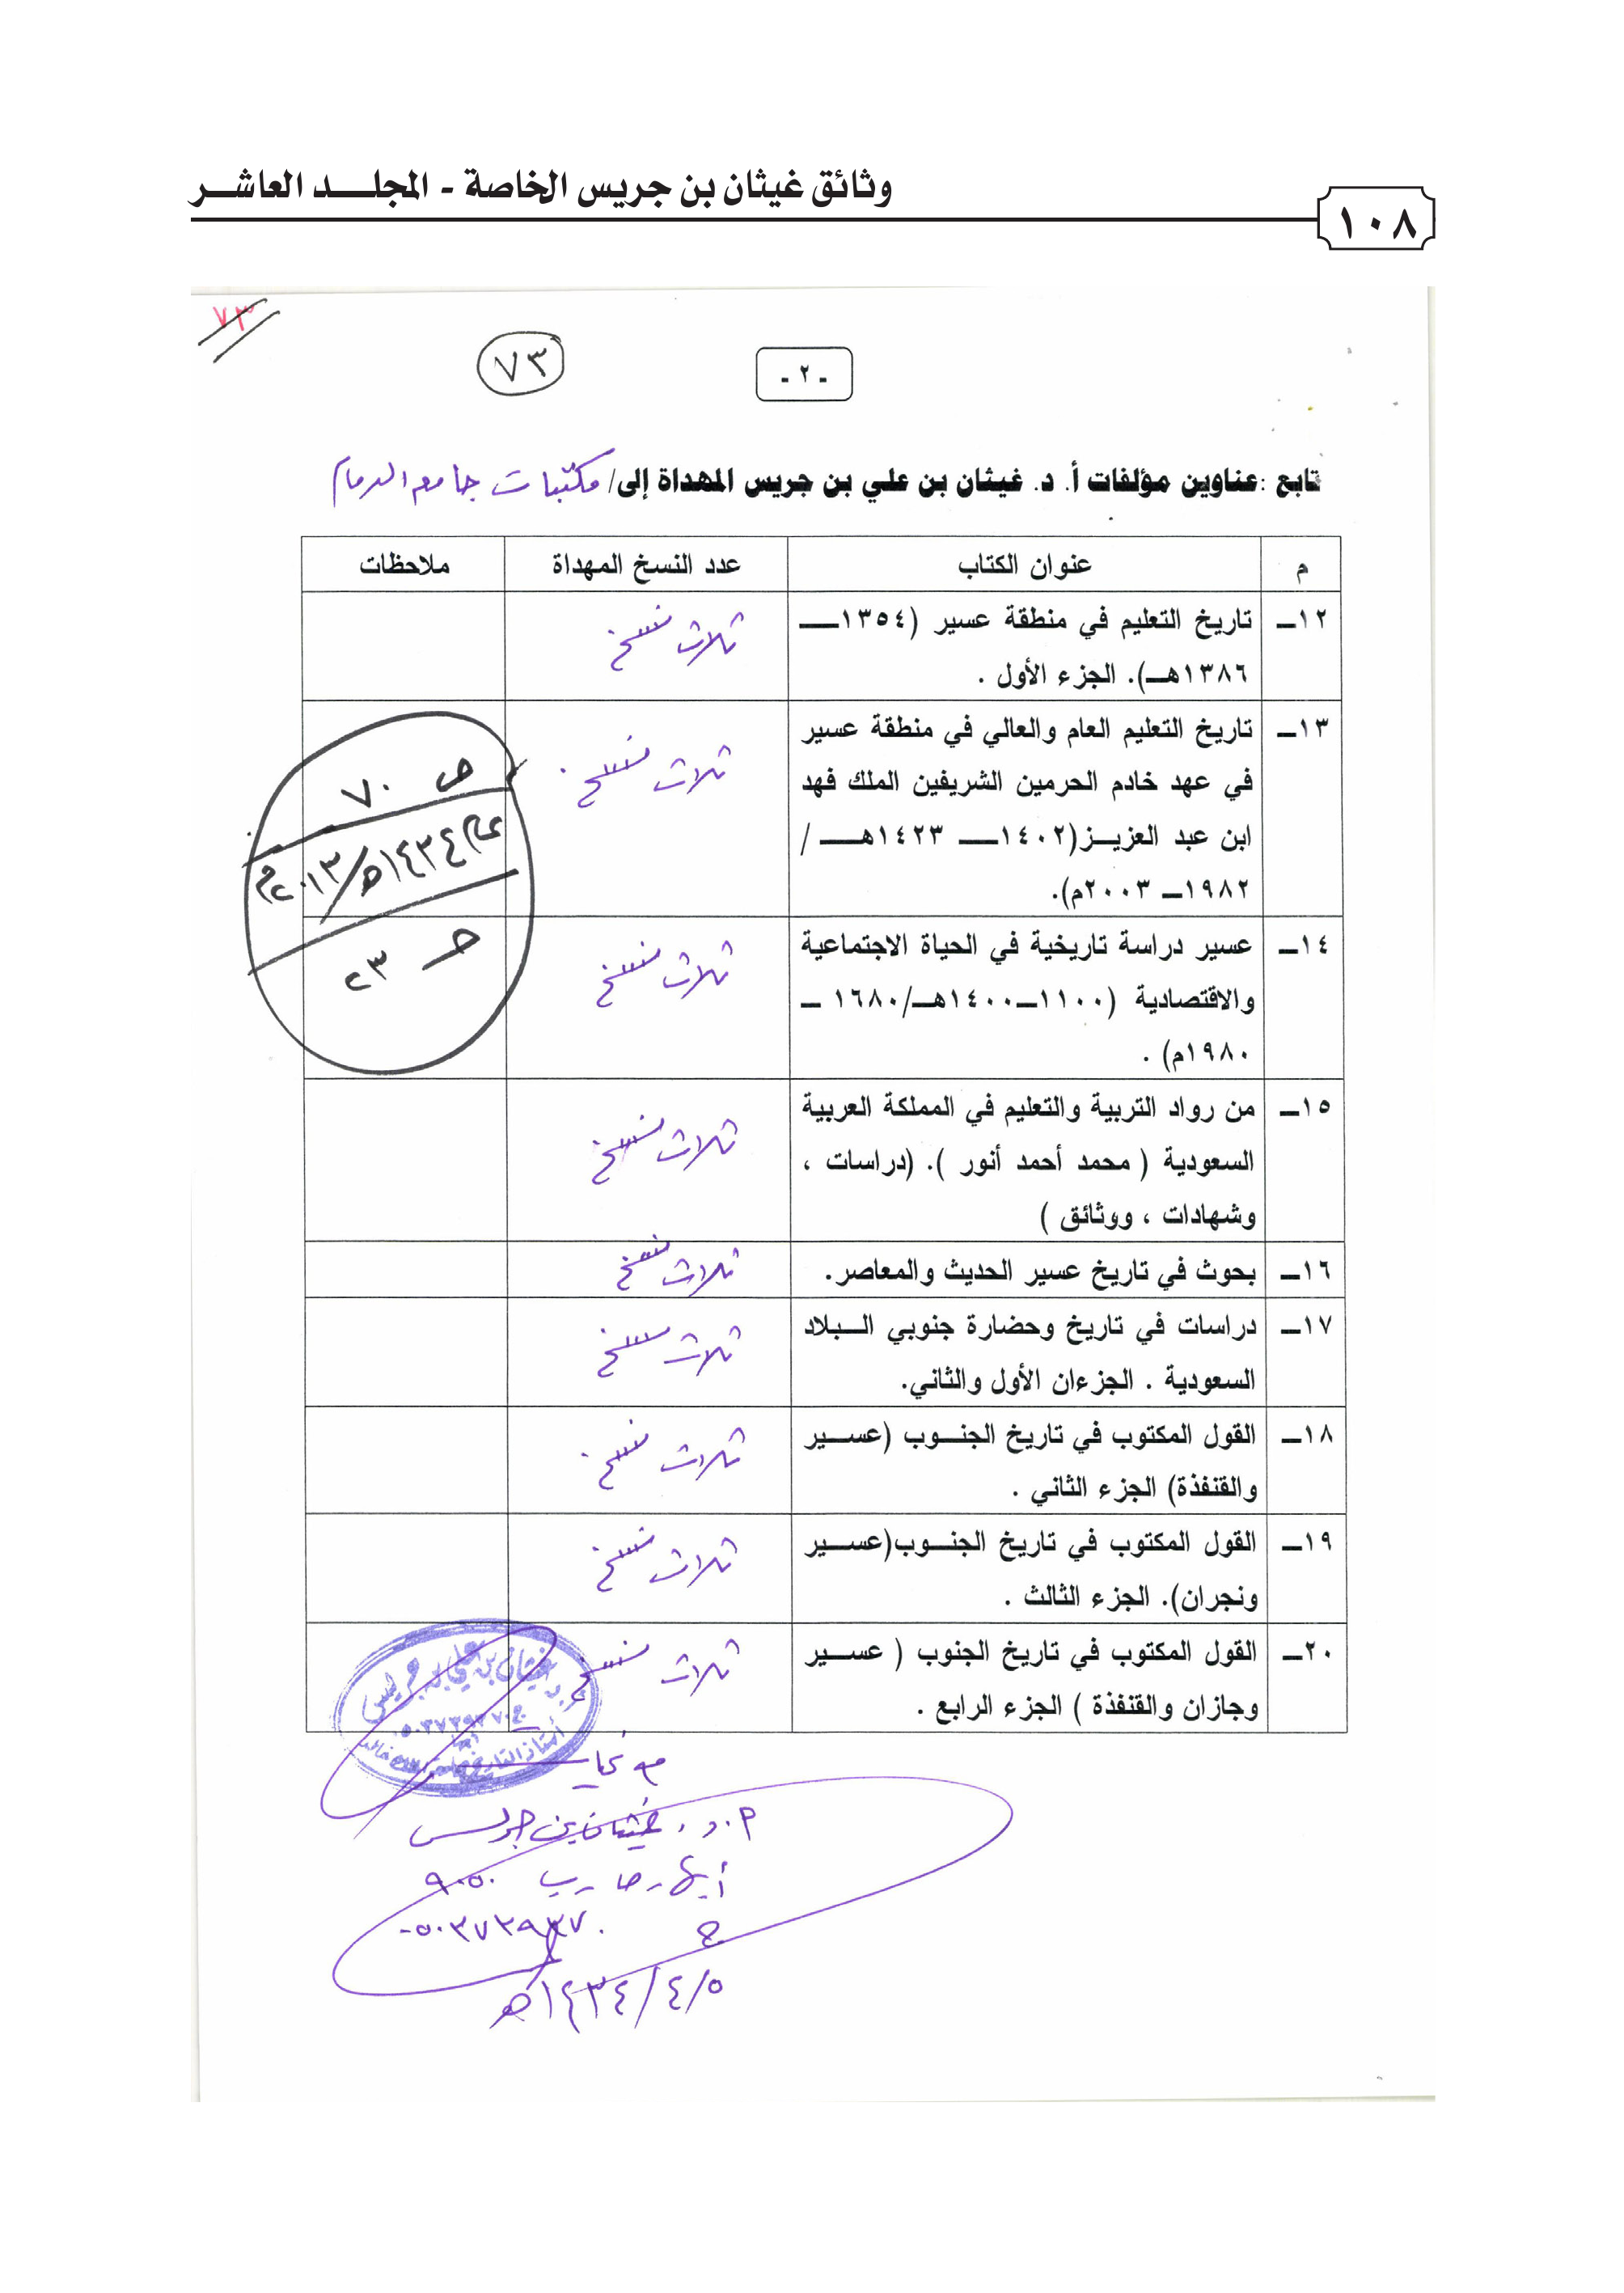 وثائق غيثان بن جريس الخاصة - المجلـــد العاشـــر
١٠٨
٧٣
٧٣
- ٢ -
تابع :عناوين مؤلفات أ. د. غيثان بن علي بن جريس المهداة إلى/ مكتبات جامع الدمام
م
عنوان الكتاب
عدد النسخ المهداة
ملاحظات
١٢ــ
تاريخ التعليم في منطقة عسير (١٣٥٤ــ
١٣٨٦هــ). الجزء الأول .
ثلاث نسخ
١٣ــ
تاريخ التعليم العام والعالي في منطقة عسير
في عهد خادم الحرمين الشريفين الملك فهد
ابن عبد العزيـز(١٤٠٢ــ ١٤٢٣هــ /
١٩٨٢ــ ٢٠٠٣م).
ثلاث نسخ
ص ٧٠
عام ١٤٣٤هـ/٢٠١٣م
حـ ٢٣
١٤ــ
عسير دراسة تاريخية في الحياة الاجتماعية
والاقتصادية (١١٠٠ــ١٤٠٠هــ/١٦٨٠ ــ
١٩٨٠م) .
ثلاث نسخ
١٥ــ
من رواد التربية والتعليم في المملكة العربية
السعودية ( محمد أحمد أنور ). (دراسات ،
وشهادات ، ووثائق )
ثلاث نسخ
١٦ــ
بحوث في تاريخ عسير الحديث والمعاصر.
ثلاث نسخ
١٧ــ
دراسات في تاريخ وحضارة جنوبي الــبلاد
السعودية . الجزءان الأول والثاني.
ثلاث نسخ
١٨ــ
القول المكتوب في تاريخ الجنــوب (عســير
والقنفذة) الجزء الثاني .
ثلاث نسخ
١٩ــ
القول المكتوب في تاريخ الجنــوب(عســير
ونجران). الجزء الثالث .
ثلاث نسخ
٢٠ــ
القول المكتوب في تاريخ الجنوب ( عســير
وجازان والقنفذة ) الجزء الرابع .
ثلاث نسخ
أ.د. غيثان بن علي بن جريس
ج ٠٥٠٣٧٣٩٣٧٠
أبها
أستاذ التاريخ جامعة الملك خالد
أ.د. غيثان بن جريس
أبها - ص.ب ٩٠٥٠
ج ٠٥٠٣٧٣٩٣٧٠
٥/٤/١٤٣٤هـ